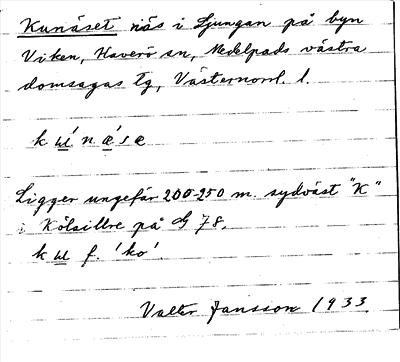 Kunäset näs i Ljungan på byn
Viken, Haverö sn, Medelpads västra
domsagas tg, Västernorrl. l.
k ú n ǽ s e
Ligger ungefär 200-250 m. sydväst "K"
i Kölsillre på G 78.
k u f. 'ko'.
Valter Jansson 1933.